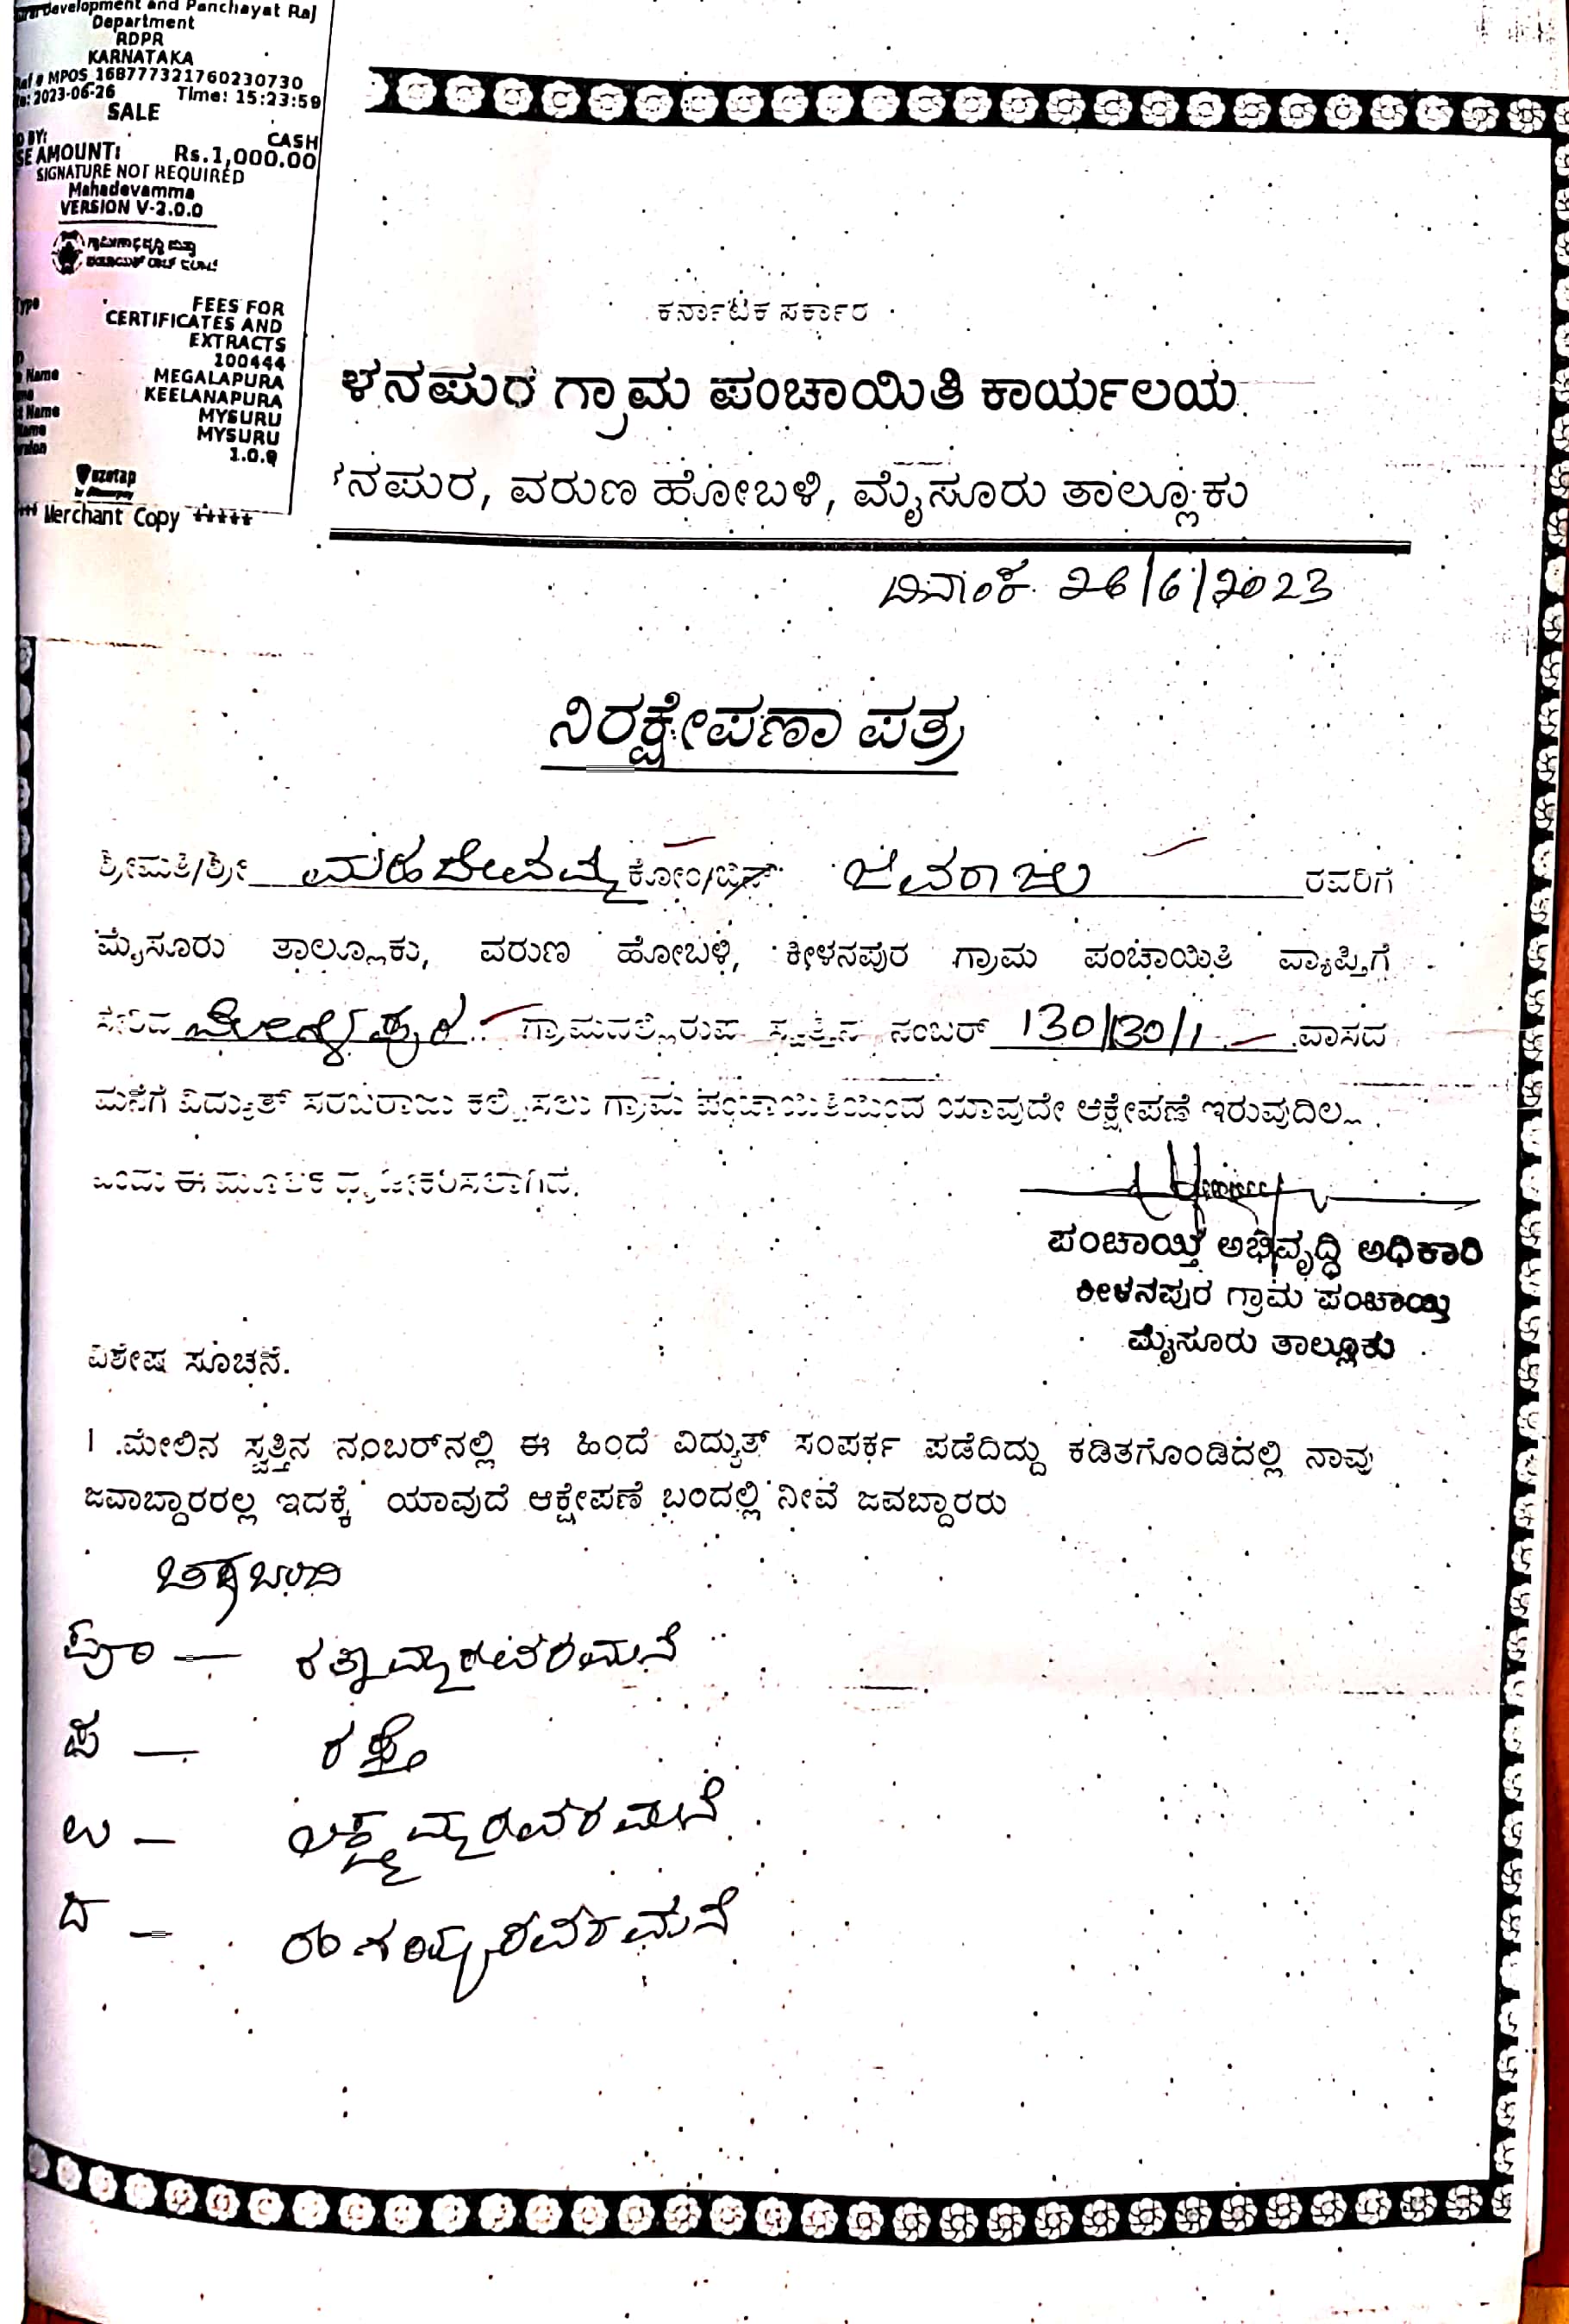 Development and Panchayat Raj
Department
RDPR
KARNATAKA
Ref # MPOS_168777321760230730
2023-06-26 Time: 15:23:59
SALE
BY: CASH
AMOUNT: Rs.1,000.00
SIGNATURE NOT REQUIRED
Mahadevamma
VERSION V-2.0.0
Type FEES FOR
CERTIFICATES AND
EXTRACTS
100444
Name MEGALAPURA
KEELANAPURA
Name MYSURU
Name MYSURU
1.0.9
ezetap
Merchant Copy *****
ಕರ್ನಾಟಕ ಸರ್ಕಾರ
ಳನಪುರ ಗ್ರಾಮ ಪಂಚಾಯಿತಿ ಕಾರ್ಯಲಯ
ನಪುರ, ವರುಣ ಹೋಬಳಿ, ಮೈಸೂರು ತಾಲ್ಲೂಕು
ದಿನಾಂಕ 26/6/2023
ನಿರಕ್ಷೇಪಣಾ ಪತ್ರ
ಶ್ರೀಮತಿ/ಶ್ರೀ ಮಹದೇವಮ್ಮ ಕೋಂ/ಬಿನ್ ಜವರಾಜು ರವರಿಗೆ
ಮೈಸೂರು ತಾಲ್ಲೂಕು, ವರುಣ ಹೋಬಳಿ, ಕೀಳನಪುರ ಗ್ರಾಮ ಪಂಚಾಯಿತಿ ವ್ಯಾಪ್ತಿಗೆ
ಸೇರಿದ ಮೇಗಳಾಪುರ ಗ್ರಾಮದಲ್ಲಿರುವ ಸ್ವತ್ತಿನ ನಂಬರ್ 130/130/1 ವಾಸದ
ಮನೆಗೆ ವಿದ್ಯುತ್ ಸರಬರಾಜು ಕಲ್ಪಿಸಲು ಗ್ರಾಮ ಪಂಚಾಯಿತಿಯಿಂದ ಯಾವುದೇ ಆಕ್ಷೇಪಣೆ ಇರುವುದಿಲ್ಲ.
ಎಂದು ಈ ಮೂಲಕ ದೃಢೀಕರಿಸಲಾಗಿದೆ.
ಪಂಚಾಯ್ತಿ ಅಭಿವೃದ್ಧಿ ಅಧಿಕಾರಿ
ಕೀಳನಪುರ ಗ್ರಾಮ ಪಂಚಾಯ್ತಿ
ಮೈಸೂರು ತಾಲ್ಲೂಕು
ವಿಶೇಷ ಸೂಚನೆ.
1 .ಮೇಲಿನ ಸ್ವತ್ತಿನ ನಂಬರ್‌ನಲ್ಲಿ ಈ ಹಿಂದೆ ವಿದ್ಯುತ್ ಸಂಪರ್ಕ ಪಡೆದಿದ್ದು ಕಡಿತಗೊಂಡಿದಲ್ಲಿ ನಾವು
ಜವಾಬ್ದಾರರಲ್ಲ ಇದಕ್ಕೆ ಯಾವುದೆ ಆಕ್ಷೇಪಣೆ ಬಂದಲ್ಲಿ ನೀವೆ ಜವಬ್ದಾರರು
ಚಕ್ಕಬಂದಿ
ಪೂ — ರತ್ನಮ್ಮರವರ ಮನೆ
ಪ — ರಸ್ತೆ
ಉ — ಲಕ್ಷ್ಮಮ್ಮರವರ ಮನೆ
ದ — ರಂಗಯ್ಯರವರ ಮನೆ